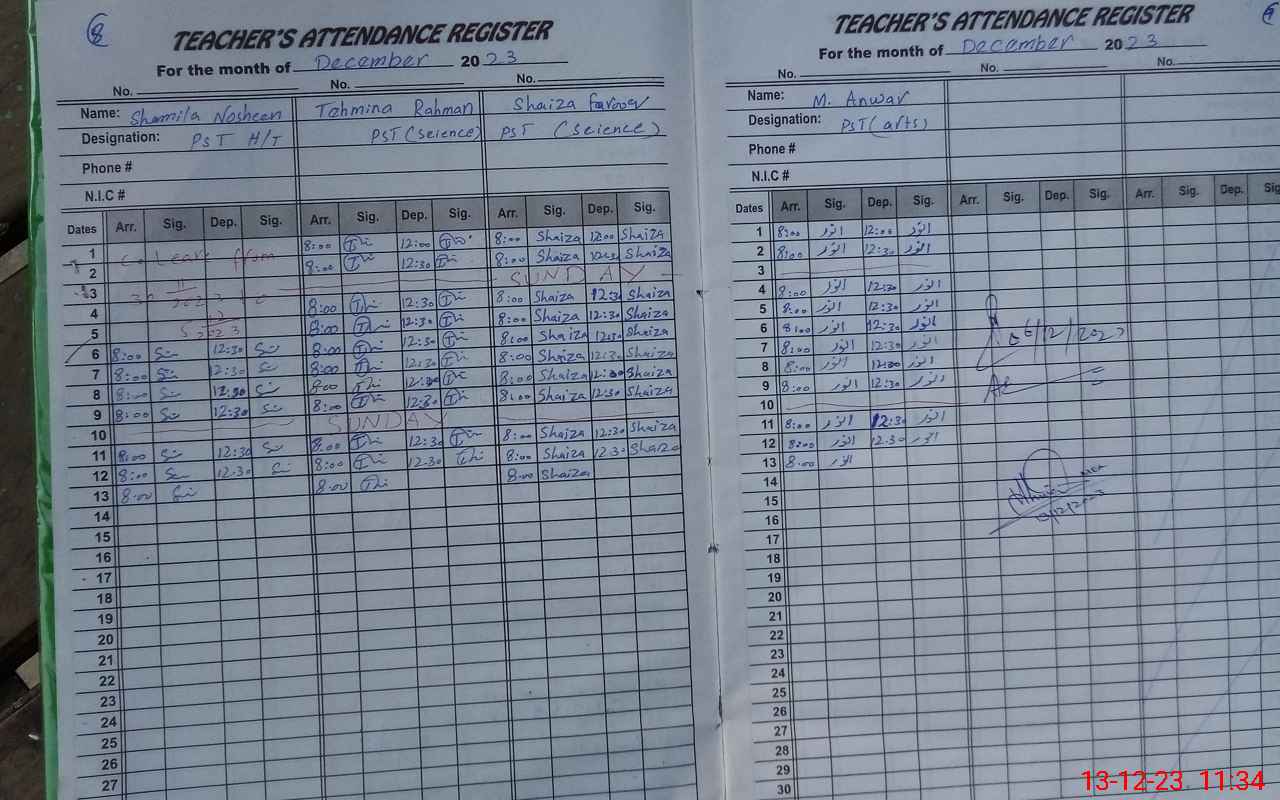 8
TEACHER'S ATTENDANCE REGISTER
For the month of December 2023
No. No. No.
Name: Shamila Nosheen Tehmina Rahman Shaiza Farooq
Designation: PST H/T PST (science) PST (science)
Phone #
N.I.C #
Dates Arr. Sig. Dep. Sig. Arr. Sig. Dep. Sig. Arr. Sig. Dep. Sig.
1 C. Leave from 8:00 12:00 8:00 Shaiza 12:00 Shaiza
2 8:00 12:30 8:00 Shaiza 12:30 Shaiza
3 SUNDAY
4 8:00 12:30 8:00 Shaiza 12:30 Shaiza
5 8:00 12:30 8:00 Shaiza 12:30 Shaiza
6 8:00 12:30 8:00 12:30 8:00 Shaiza 12:30 Shaiza
7 8:00 12:30 8:00 12:30 8:00 Shaiza 12:30 Shaiza
8 8:00 12:30 8:00 12:00 8:00 Shaiza 12:00 Shaiza
9 8:00 12:30 8:00 12:30 8:00 Shaiza 12:30 Shaiza
10 SUNDAY
11 8:00 12:30 8:00 12:30 8:00 Shaiza 12:30 Shaiza
12 8:00 12.30 8:00 12.30 8:00 Shaiza 12:30 Shaiza
13 8:00 8:00 8:00 Shaiza
14
15
16
17
18
19
20
21
22
23
24
25
26
27
TEACHER'S ATTENDANCE REGISTER
For the month of December 2023
No. No. No.
Name: M. Anwar
Designation: PST (arts)
Phone #
N.I.C #
Dates Arr. Sig. Dep. Sig. Arr. Sig. Dep. Sig. Arr. Sig. Dep. Sig.
1 8:00 انور 12:00 انور
2 8:00 انور 12:30 انور
3
4 8:00 انور 12:30 انور
5 8:00 انور 12:30 انور
6 8:00 انور 12:30 انور
7 8:00 انور 12:30 انور 06/12/2023
8 8:00 انور 12:00 انور
9 8:00 انور 12:30 انور
10
11 8:00 انور 12:30 انور
12 8:00 انور 12.30 انور
13 8:00 انور
14
15
16
17
18
19
20
21
22
23
24
25
26
27
28
29
30
13-12-23 11:34